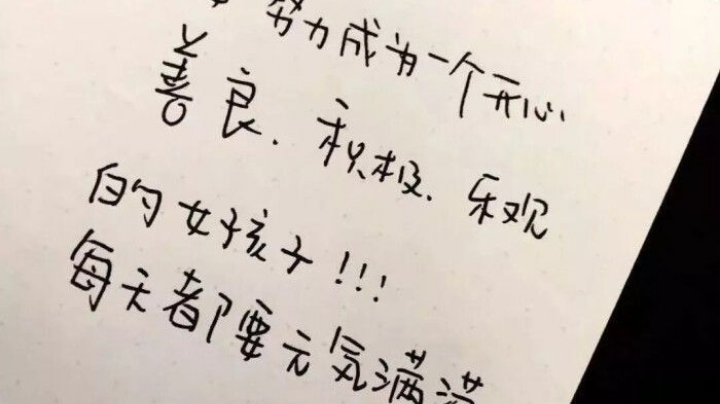 努力成为一个开心
善良.积极.乐观
的女孩子!!!
每天都要元气满满